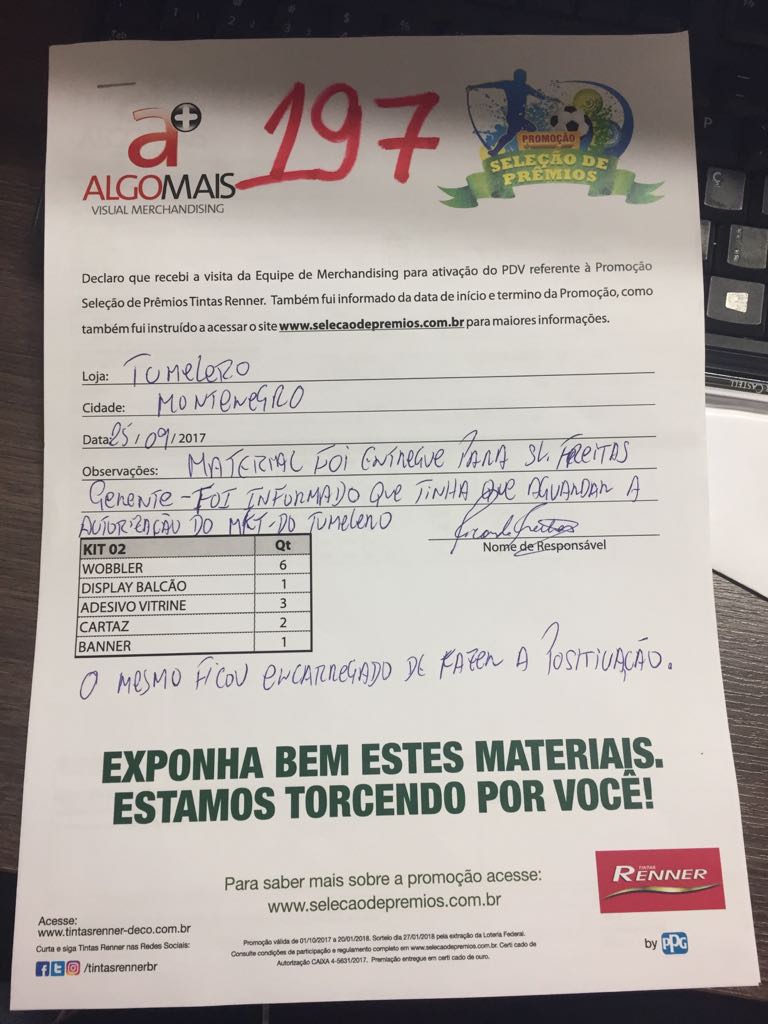 a+
ALGOMAIS
VISUAL MERCHANDISING
197
PROMOÇÃO
SELEÇÃO DE
PRÊMIOS
Declaro que recebi a visita da Equipe de Merchandising para ativação do PDV referente à Promoção
Seleção de Prêmios Tintas Renner. Também fui informado da data de início e termino da Promoção, como
também fui instruído a acessar o site www.selecaodepremios.com.br para maiores informações.
Loja: TUMELERO
Cidade: MONTENEGRO
Data: 25/09/2017
Observações: MATERIAL FOI ENTREGUE PARA SR. FREITAS
GERENTE - FOI INFORMADO QUE TINHA QUE AGUARDAR A
AUTORIZAÇÃO DO MKT-DO TUMELERO
Nome de Responsável
KIT 02 Qt
WOBBLER 6
DISPLAY BALCÃO 1
ADESIVO VITRINE 3
CARTAZ 2
BANNER 1
O MESMO FICOU ENCARREGADO DE FAZER A POSITIVAÇÃO.
EXPONHA BEM ESTES MATERIAIS.
ESTAMOS TORCENDO POR VOCÊ!
Para saber mais sobre a promoção acesse:
www.selecaodepremios.com.br
TINTAS
RENNER
by PPG
Acesse:
www.tintasrenner-deco.com.br
Curta e siga Tintas Renner nas Redes Sociais:
/tintasrennerbr
Promoção válida de 01/10/2017 a 20/01/2018. Sorteio dia 27/01/2018 pela extração da Loteria Federal.
Consulte condições de participação e regulamento completo em www.selecaodepremios.com.br. Certi cado de
Autorização CAIXA 4-5631/2017. Premiação entregue em certi cado de ouro.